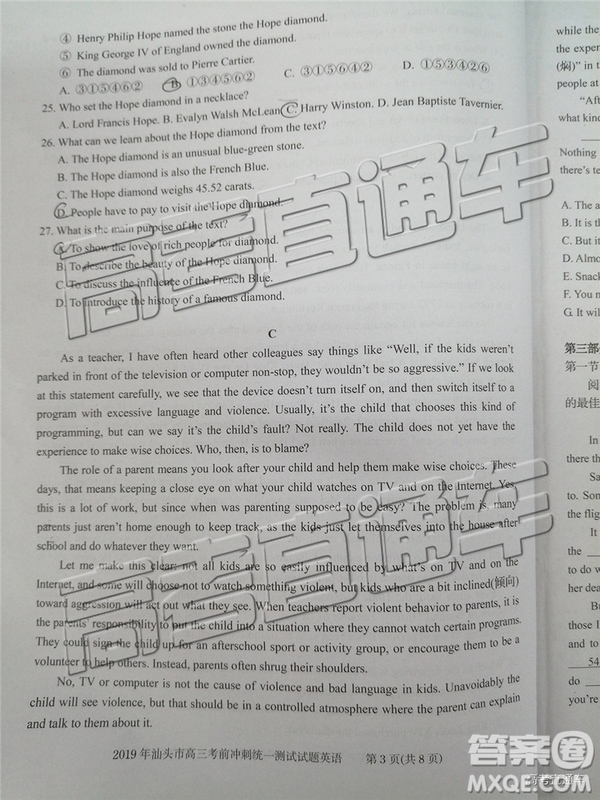 ④ Henry Philip Hope named the stone the Hope diamond.
⑤ King George IV of England owned the diamond.
⑥ The diamond was sold to Pierre Cartier.
A. ③①⑤④⑥② B. ①③④⑤⑥② C. ③①⑤⑥④② D. ①⑤③④②⑥
25. Who set the Hope diamond in a necklace?
A. Lord Francis Hope. B. Evalyn Walsh McLean. C. Harry Winston. D. Jean Baptiste Tavernier.
26. What can we learn about the Hope diamond from the text?
A. The Hope diamond is an unusual blue-green stone.
B. The Hope diamond is also the French Blue.
C. The Hope diamond weighs 45.52 carats.
D. People have to pay to visit the Hope diamond.
27. What is the main purpose of the text?
A. To show the love of rich people for diamond.
B. To describe the beauty of the Hope diamond.
C. To discuss the influence of the French Blue.
D. To introduce the history of a famous diamond.
C
As a teacher, I have often heard other colleagues say things like “Well, if the kids weren’t
parked in front of the television or computer non-stop, they wouldn’t be so aggressive.” If we look
at this statement carefully, we see that the device doesn’t turn itself on, and then switch itself to a
program with excessive language and violence. Usually, it’s the child that chooses this kind of
programming, but can we say it’s the child’s fault? Not really. The child does not yet have the
experience to make wise choices. Who, then, is to blame?
The role of a parent means you look after your child and help them make wise choices. These
days, that means keeping a close eye on what your child watches on TV and on the Internet. Yes,
this is a lot of work, but since when was parenting supposed to be easy? The problem is, many
parents just aren’t home enough to keep track, as the kids just let themselves into the house after
school and do whatever they want.
Let me make this clear: not all kids are so easily influenced by what’s on TV and on the
Internet, and some will choose not to watch something violent, but kids who are a bit inclined(倾向)
toward aggression will act out what they see. When teachers report violent behavior to parents, it is
the parents’ responsibility to put the child into a situation where they cannot watch certain programs.
They could sign the child up for an afterschool sport or activity group, or encourage them to be a
volunteer to help others. Instead, parents often shrug their shoulders.
No, TV or computer is not the cause of violence and bad language in kids. Unavoidably the
child will see violence, but that should be in a controlled atmosphere where the parent can explain
and talk to them about it.
2019 年汕头市高三考前冲刺统一测试试题英语 第 3 页(共 8 页)
while they
the exper
(焖)” in
people at
“Aft
what kin
Nothing
there’s te
A. The a
B. It is
C. But it
D. Almo
E. Snack
F. You n
G. It will
第三部分
第一节
阅
的最佳
In
there th
Sa
of
the flig
It
the
to do w
her dea
Bo
those I
54
do
The
高考直通车
高考直通车
答案圈
高考直通车